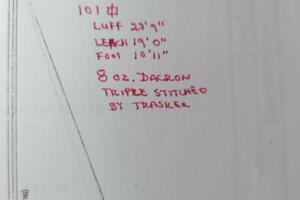 101 #
LUFF 23'9"
LEACH 19'0"
FOOT 10'11"
8 OZ. DACRON
TRIPLE STITCHED
BY TRASKER